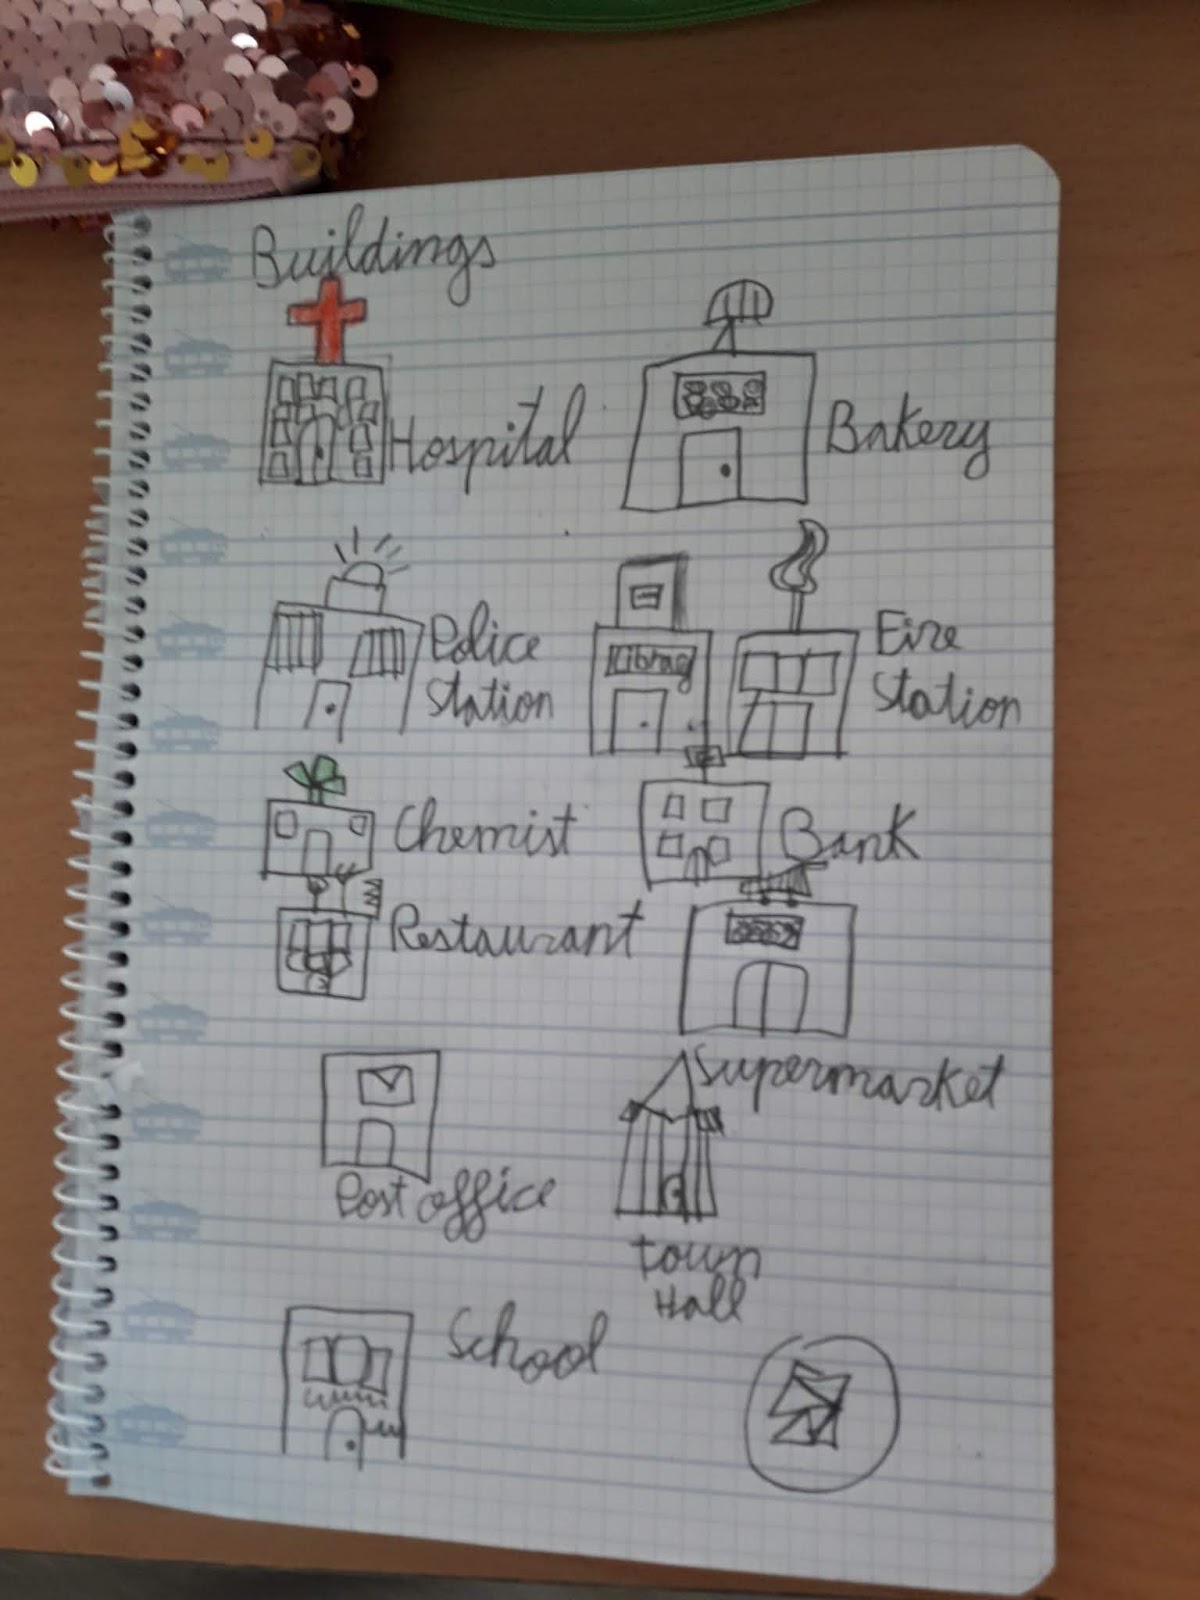 Buildings
Hospital
Bakery
Police
Station
Library
Fire
Station
Chemist
Bank
Restaurant
Supermarket
Post office
town
Hall
School